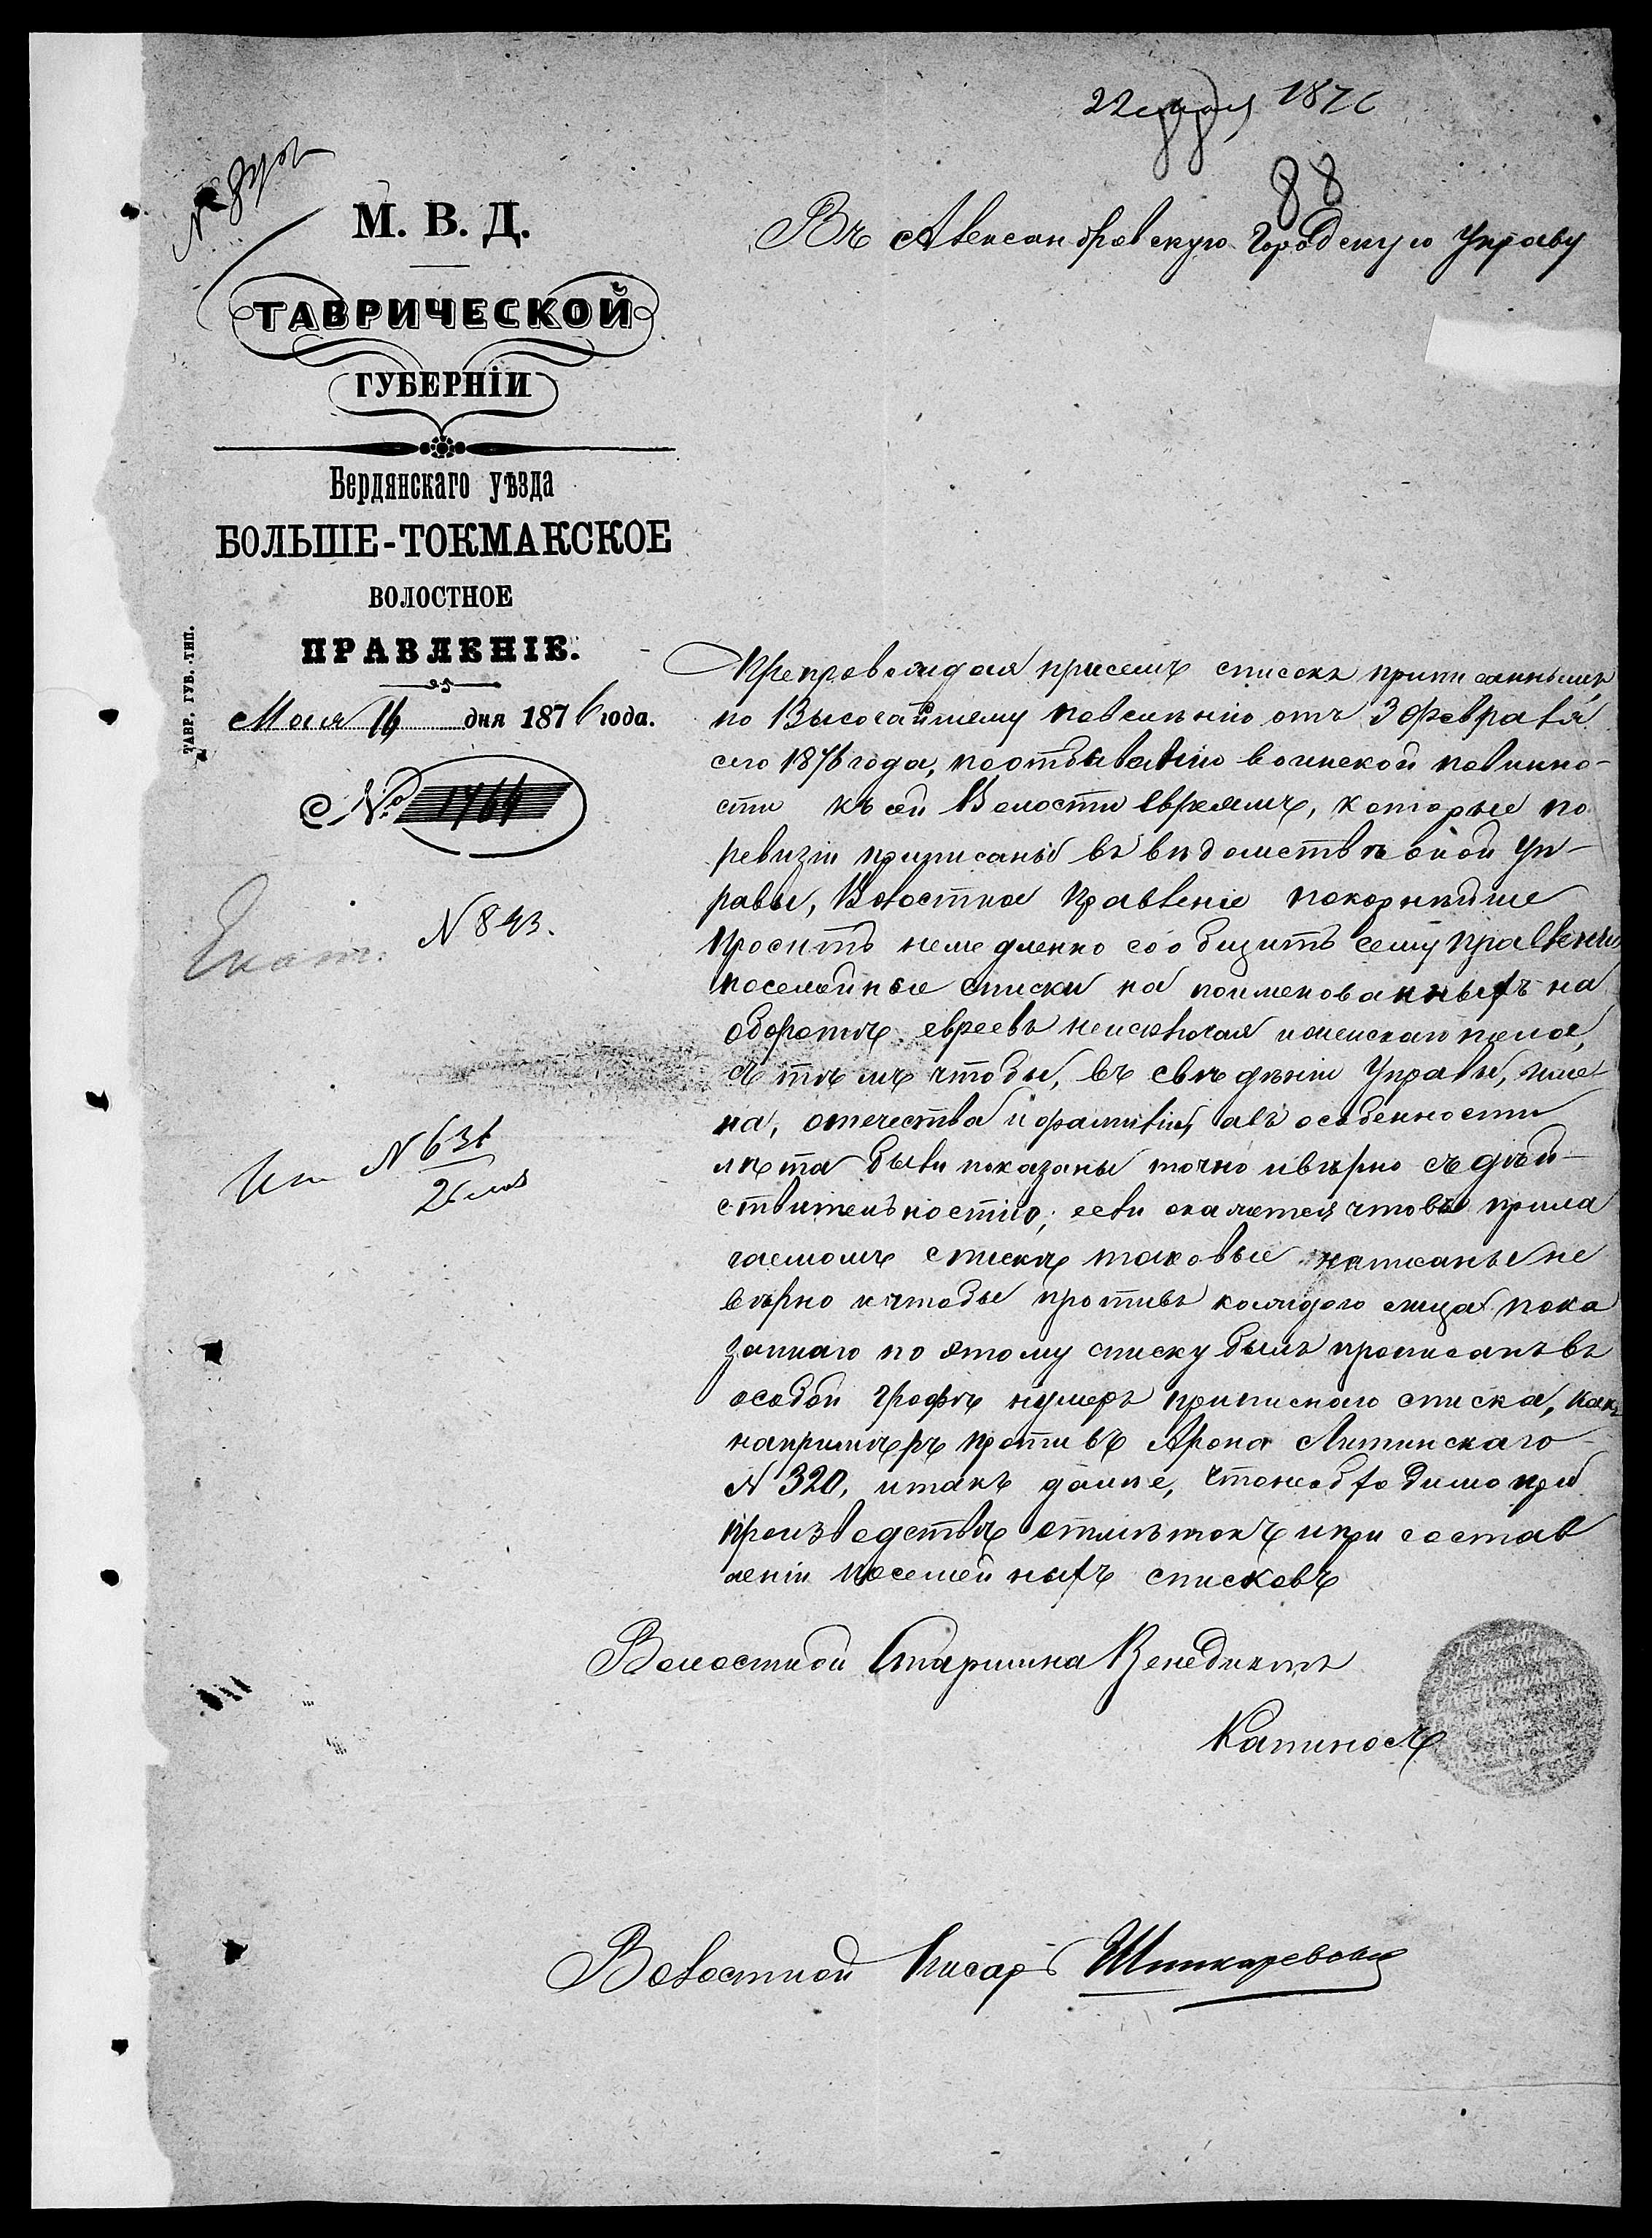 1876
88
М. В. Д.
ТАВРИЧЕСКОЙ
ГУБЕРНІИ
Бердянскаго уѣзда
БОЛЬШЕ-ТОКМАКСКОЕ
ВОЛОСТНОЕ
ПРАВЛЕНІЕ.
ТАВР. ГУБ. ТИП.
Мая 16 дня 1876 года.
№ 1764
N 843.
Екат.
N 631
Въ Александровскую Городскую Управу
Препровождая присемъ списокъ приписаннымъ
по Высочайшему повелѣнію отъ 3 Февраля
сего 1876 года, поотбыванію воинской повинно-
сти къ сей Волости евреямъ, которые по
ревизіи приписаны въ вѣдомствѣ оной Уп-
равы, Волостное Правленіе покорнѣйше
проситъ немедленно сообщить сему правленію
посемейные списки на поименованныхъ на
оборотѣ евреевъ неисключая иженскаго пола,
съ тѣмъ чтобы, въ свѣдѣніи Управы, име-
на, отечества и фамиліи, авъ особенности
лѣта были показаны точно ивѣрно съ дѣй-
ствительностію; если окажется чтовъ прила
гаемомъ спискѣ таковые написаны не
вѣрно ичтобы противъ каждаго лица пока
заннаго по этому списку былъ прописанъ въ
особой графѣ нумеръ приписнаго списка, какъ
напримѣръ противъ Арона Литинскаго
N 320, итакъ далее, чтонеобходимо при
производствѣ отмѣтокъ ипри состав
леніи посемейныхъ списковъ
Волостной Старшина Венедиктъ
Капиносъ
Волостной Писарь